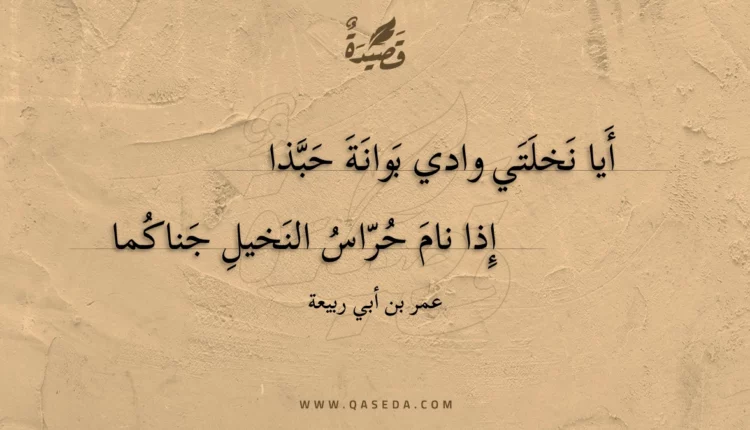 قَصِيدَةٌ
أَيا نَخلَتَي وادي بَوانَةَ حَبَّذا
إِذا نامَ حُرّاسُ النَخيلِ جَناكُما
عمر بن أبي ربيعة
WWW.QASEDA.COM